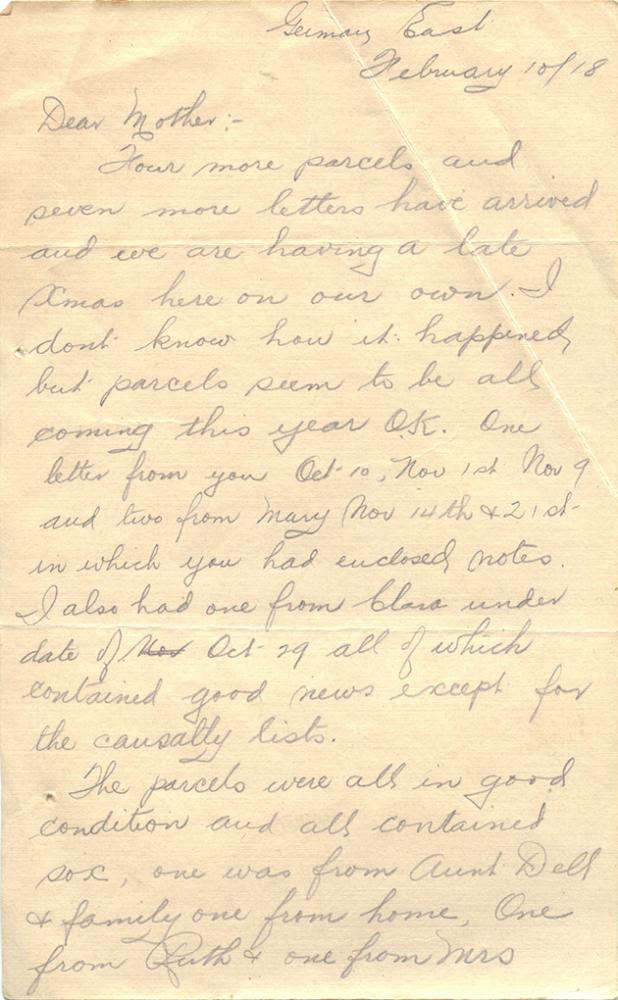 Germany East
February 10/18
Dear Mother:-
Four more parcels and
seven more letters have arrived
and we are having a late
Xmas here on our own. I
dont know how it happined
but parcels seem to be all
coming this year O.K. One
letter from you Oct 10, Nov 1st Nov 9
and two from Mary Nov 14th & 21st
in which you had enclosed notes.
I also had one from Clara under
date of Nov Oct 29 all of which
contained good news except for
the causalty lists.
The parcels were all in good
condition and all contained
sox, one was from Aunt Dell
& family one from home, One
from Ruth & one from Mrs